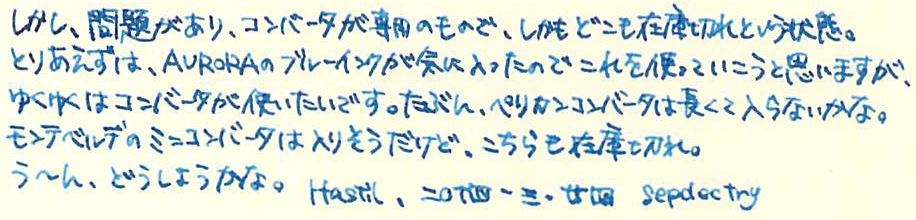 しかし、問題があり、コンバータが専用のもので、しかもどこも在庫切れという状態。
とりあえずは、AURORAのブルーインクが気に入ったのでこれを使っていこうと思いますが、
ゆくゆくはコンバータが使いたいです。たぶん、ペリカンコンバータは長くて入らないかな。
モンテベルデのミニコンバータは入りそうだけど、こちらも在庫切れ。
う～ん、どうしようかな。 Hastil、